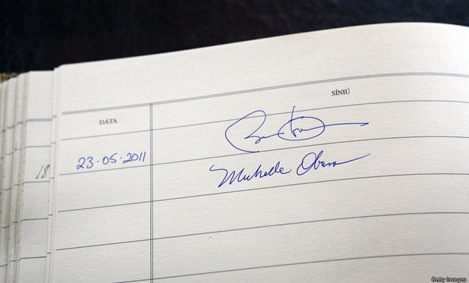 SÍNIÚ
DÁTA
18
23·05·2011
Michelle Obama
Getty Images